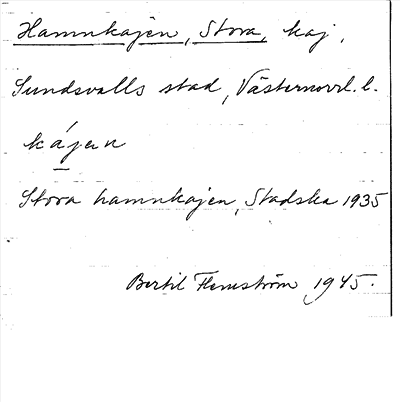 Hamnkajen, Stora, kaj.
Sundsvalls stad, Västernorrl. l.
kájen
Stora hamnkajen, Stadska 1935
Bertil Flemström, 1945.